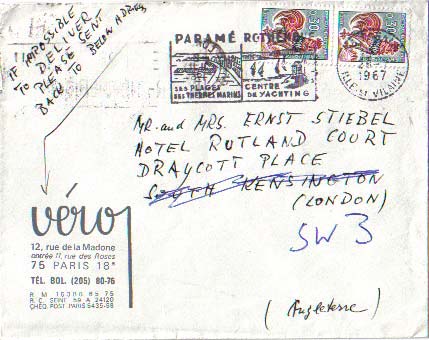 IF IMPOSSIBLE
TO DELIVER
PLEASE SENT
BACK TO BELOW ADRESS
PARAMÉ ROTHENEUF
SES PLAGES
SES THERMES MARINS
CENTRE
DE YACHTING
0,30
0,30
1967
ILLE-ET-VILAINE
MR. and MRS. ERNST STIEBEL
HOTEL RUTLAND COURT
DRAYCOTT PLACE
SOUTH KENSINGTON
(LONDON)
SW3
(Angleterre)
véro
12, rue de la Madone
entrée 17, rue des Roses
75 PARIS 18e
TÉL. BOL. (205) 80-76
R. M. 16300 65 75
R. C. SEINE 59 A 24120
CHÈQ. POST. PARIS 5435-58